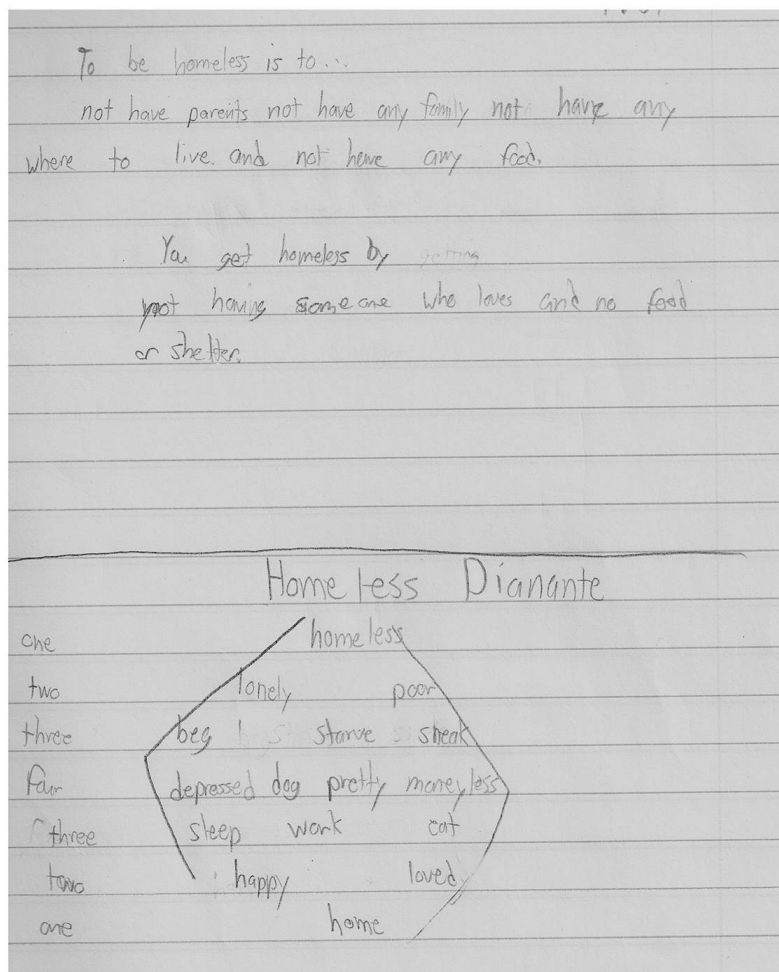 To be homeless is to...
not have parents not have any family not have any
where to live. and not have any food.
You get homeless by getting
not having someone who loves and no food
or shelter.
Homeless Dianante
one homeless
two lonely poor
three beg starve sneak
four depressed dog pretty moneyless
three sleep work eat
two happy loved
one home